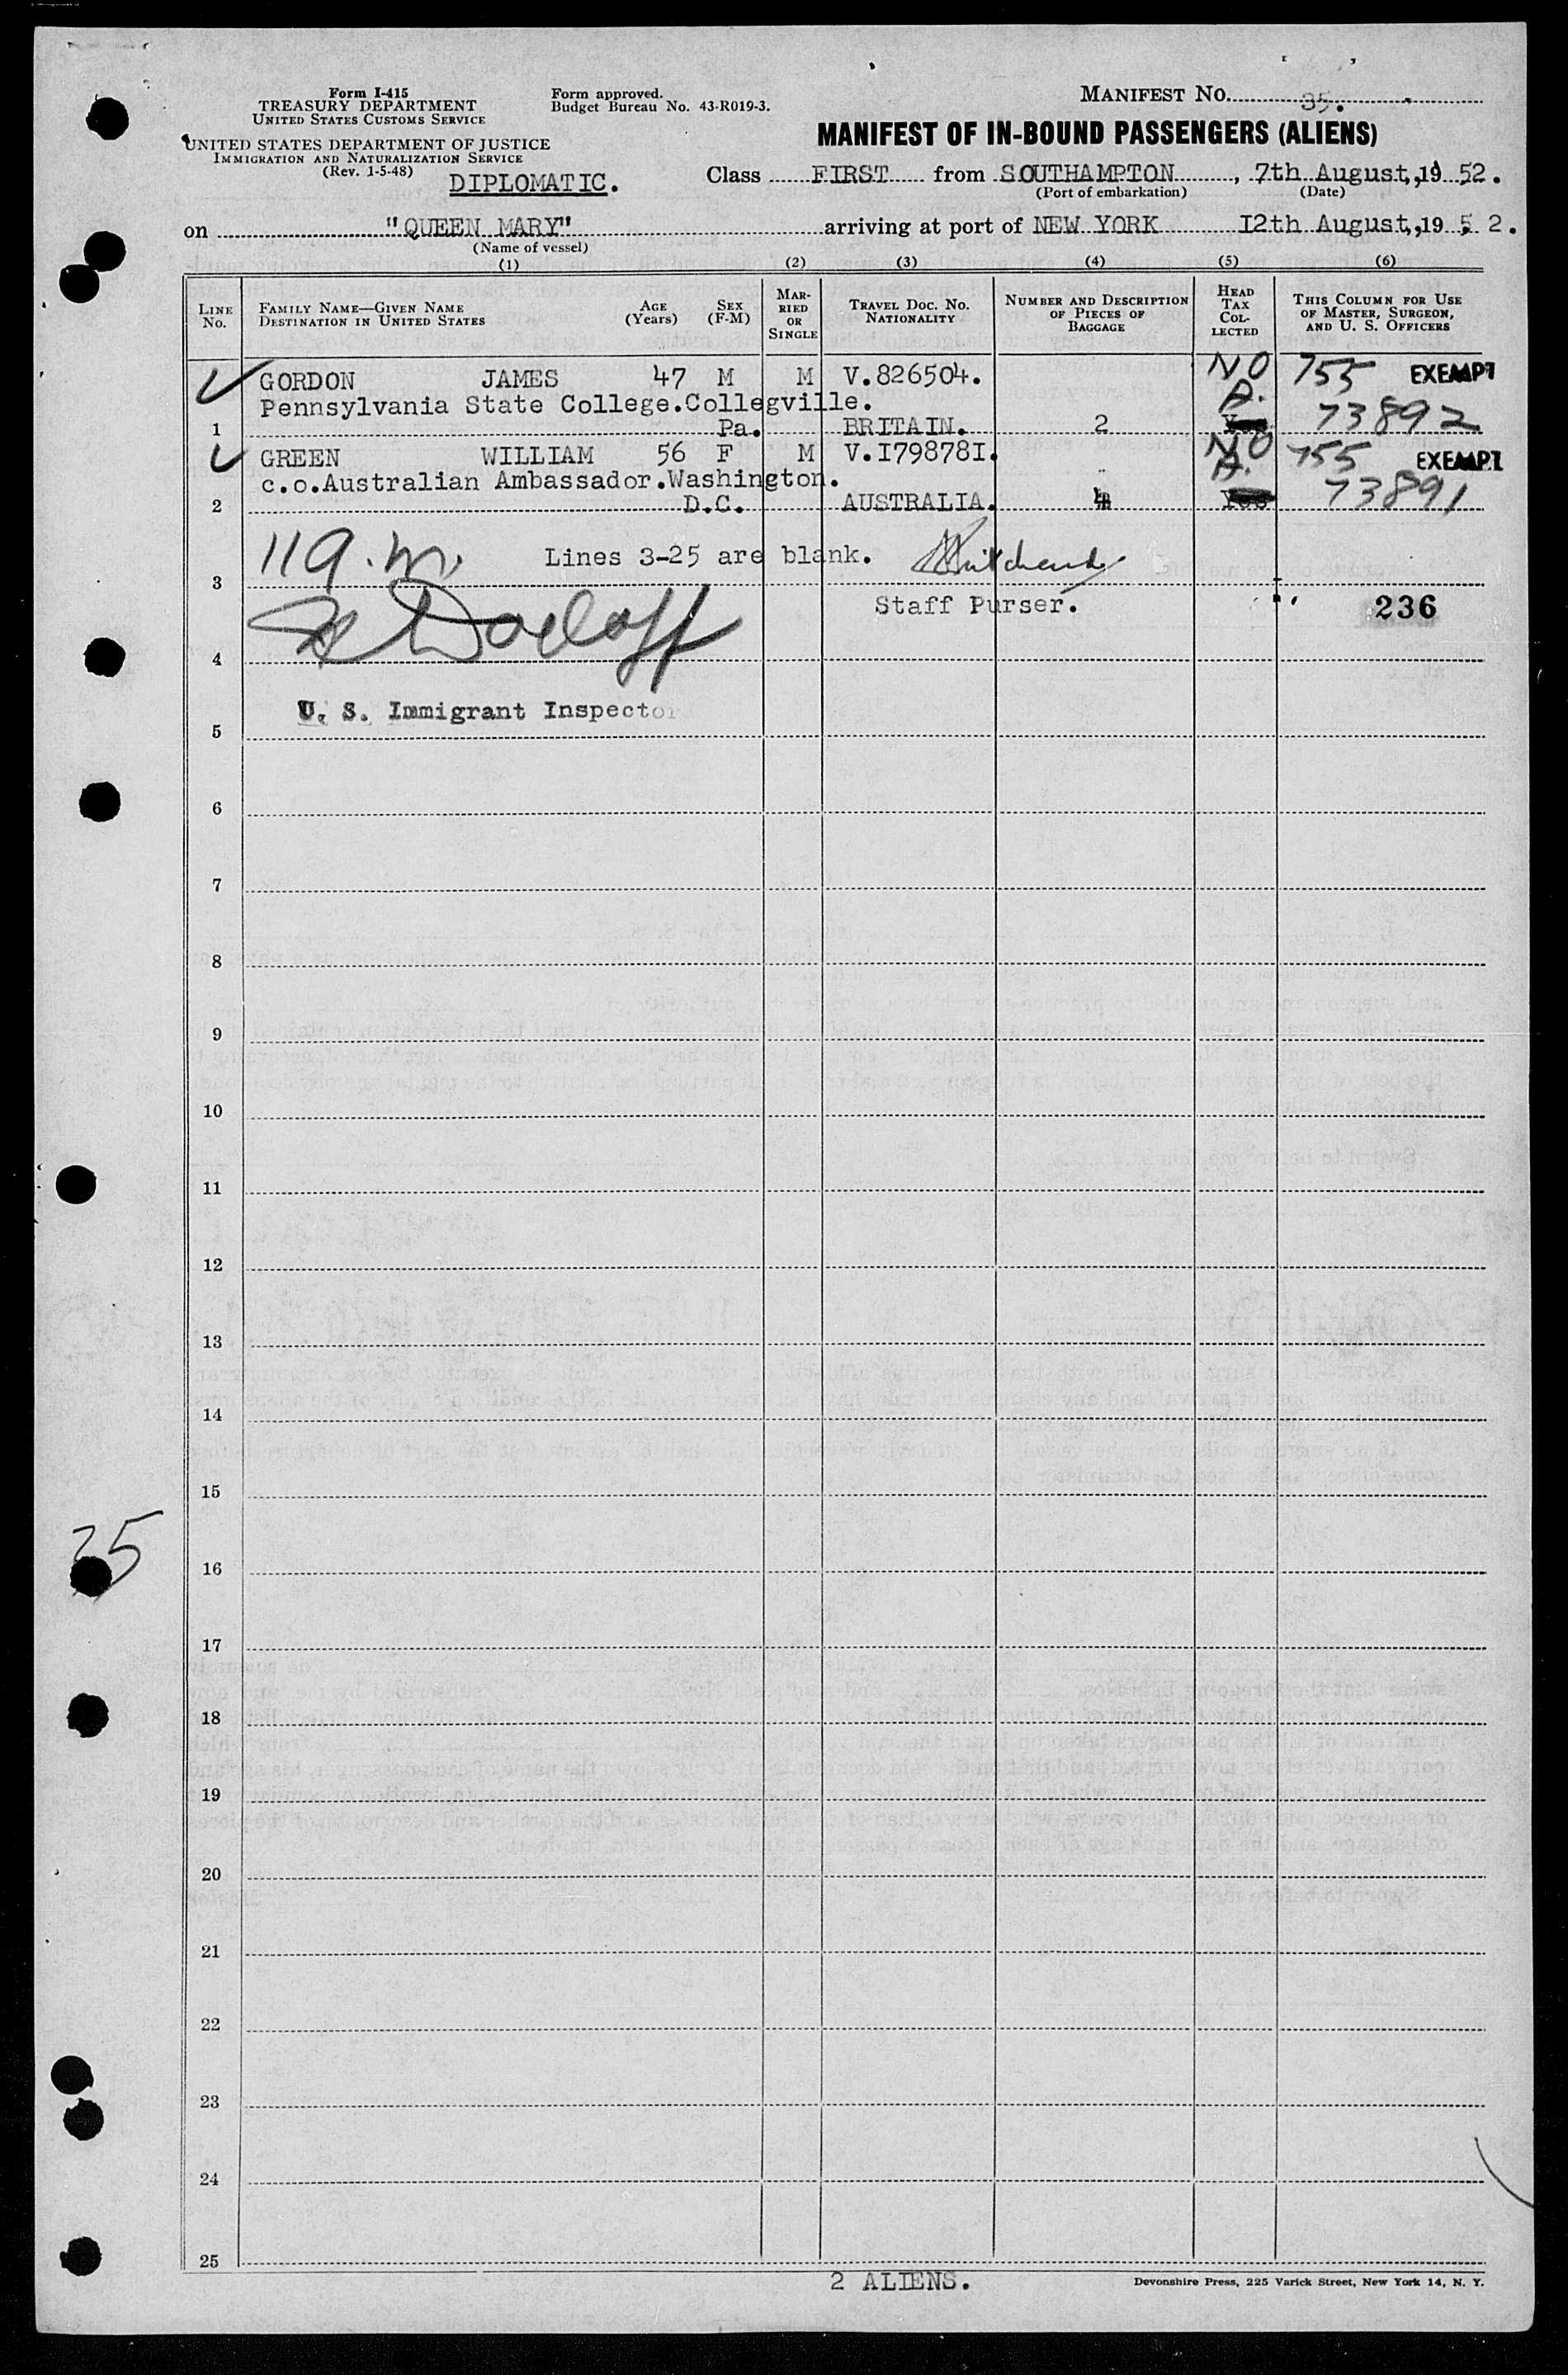 Form I-415
TREASURY DEPARTMENT
UNITED STATES CUSTOMS SERVICE
UNITED STATES DEPARTMENT OF JUSTICE
IMMIGRATION AND NATURALIZATION SERVICE
(Rev. 1-5-48)
DIPLOMATIC.
Form approved.
Budget Bureau No. 43-R019-3.
MANIFEST NO. 35.
MANIFEST OF IN-BOUND PASSENGERS (ALIENS)
Class FIRST from SOUTHAMPTON, 7th August,, 19 52.
(Port of embarkation) (Date)
on "QUEEN MARY" arriving at port of NEW YORK I2th August,, 19 5 2.
(Name of vessel)
(1) (2) (3) (4) (5) (6)
LINE NO.
FAMILY NAME—GIVEN NAME
DESTINATION IN UNITED STATES
AGE (Years)
SEX (F-M)
MARRIED OR SINGLE
TRAVEL DOC. NO. NATIONALITY
NUMBER AND DESCRIPTION OF PIECES OF BAGGAGE
HEAD TAX COLLECTED
THIS COLUMN FOR USE OF MASTER, SURGEON, AND U. S. OFFICERS
GORDON JAMES 47 M M V.826504. NO 755 EXEMPT
Pennsylvania State College.Collegville. A. 73892
1 Pa. BRITAIN. 2 Yes
GREEN WILLIAM 56 F M V.I79878I. NO 755 EXEMPT
c.o.Australian Ambassador.Washington. A. 73891
2 D.C. AUSTRALIA. 4 Yes
119.m. Lines 3-25 are blank.
3
Staff Purser. 236
4
U. S. Immigrant Inspector
5
6
7
8
9
10
11
12
13
14
15
35
16
17
18
19
20
21
22
23
24
25
2 ALIENS.
Devonshire Press, 225 Varick Street, New York 14, N. Y.